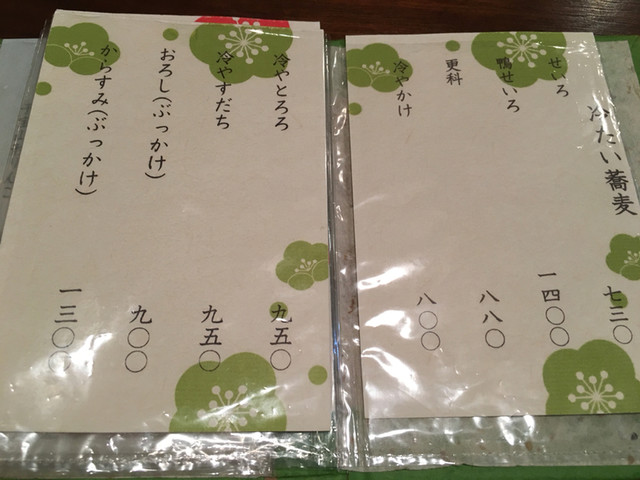 冷たい蕎麦
せいろ 七三〇
鴨せいろ 一四〇〇
更科 八八〇
冷やかけ 八〇〇
冷やとろろ 九五〇
冷やすだち 九五〇
おろし(ぶっかけ) 九〇〇
からすみ(ぶっかけ) 一三〇〇